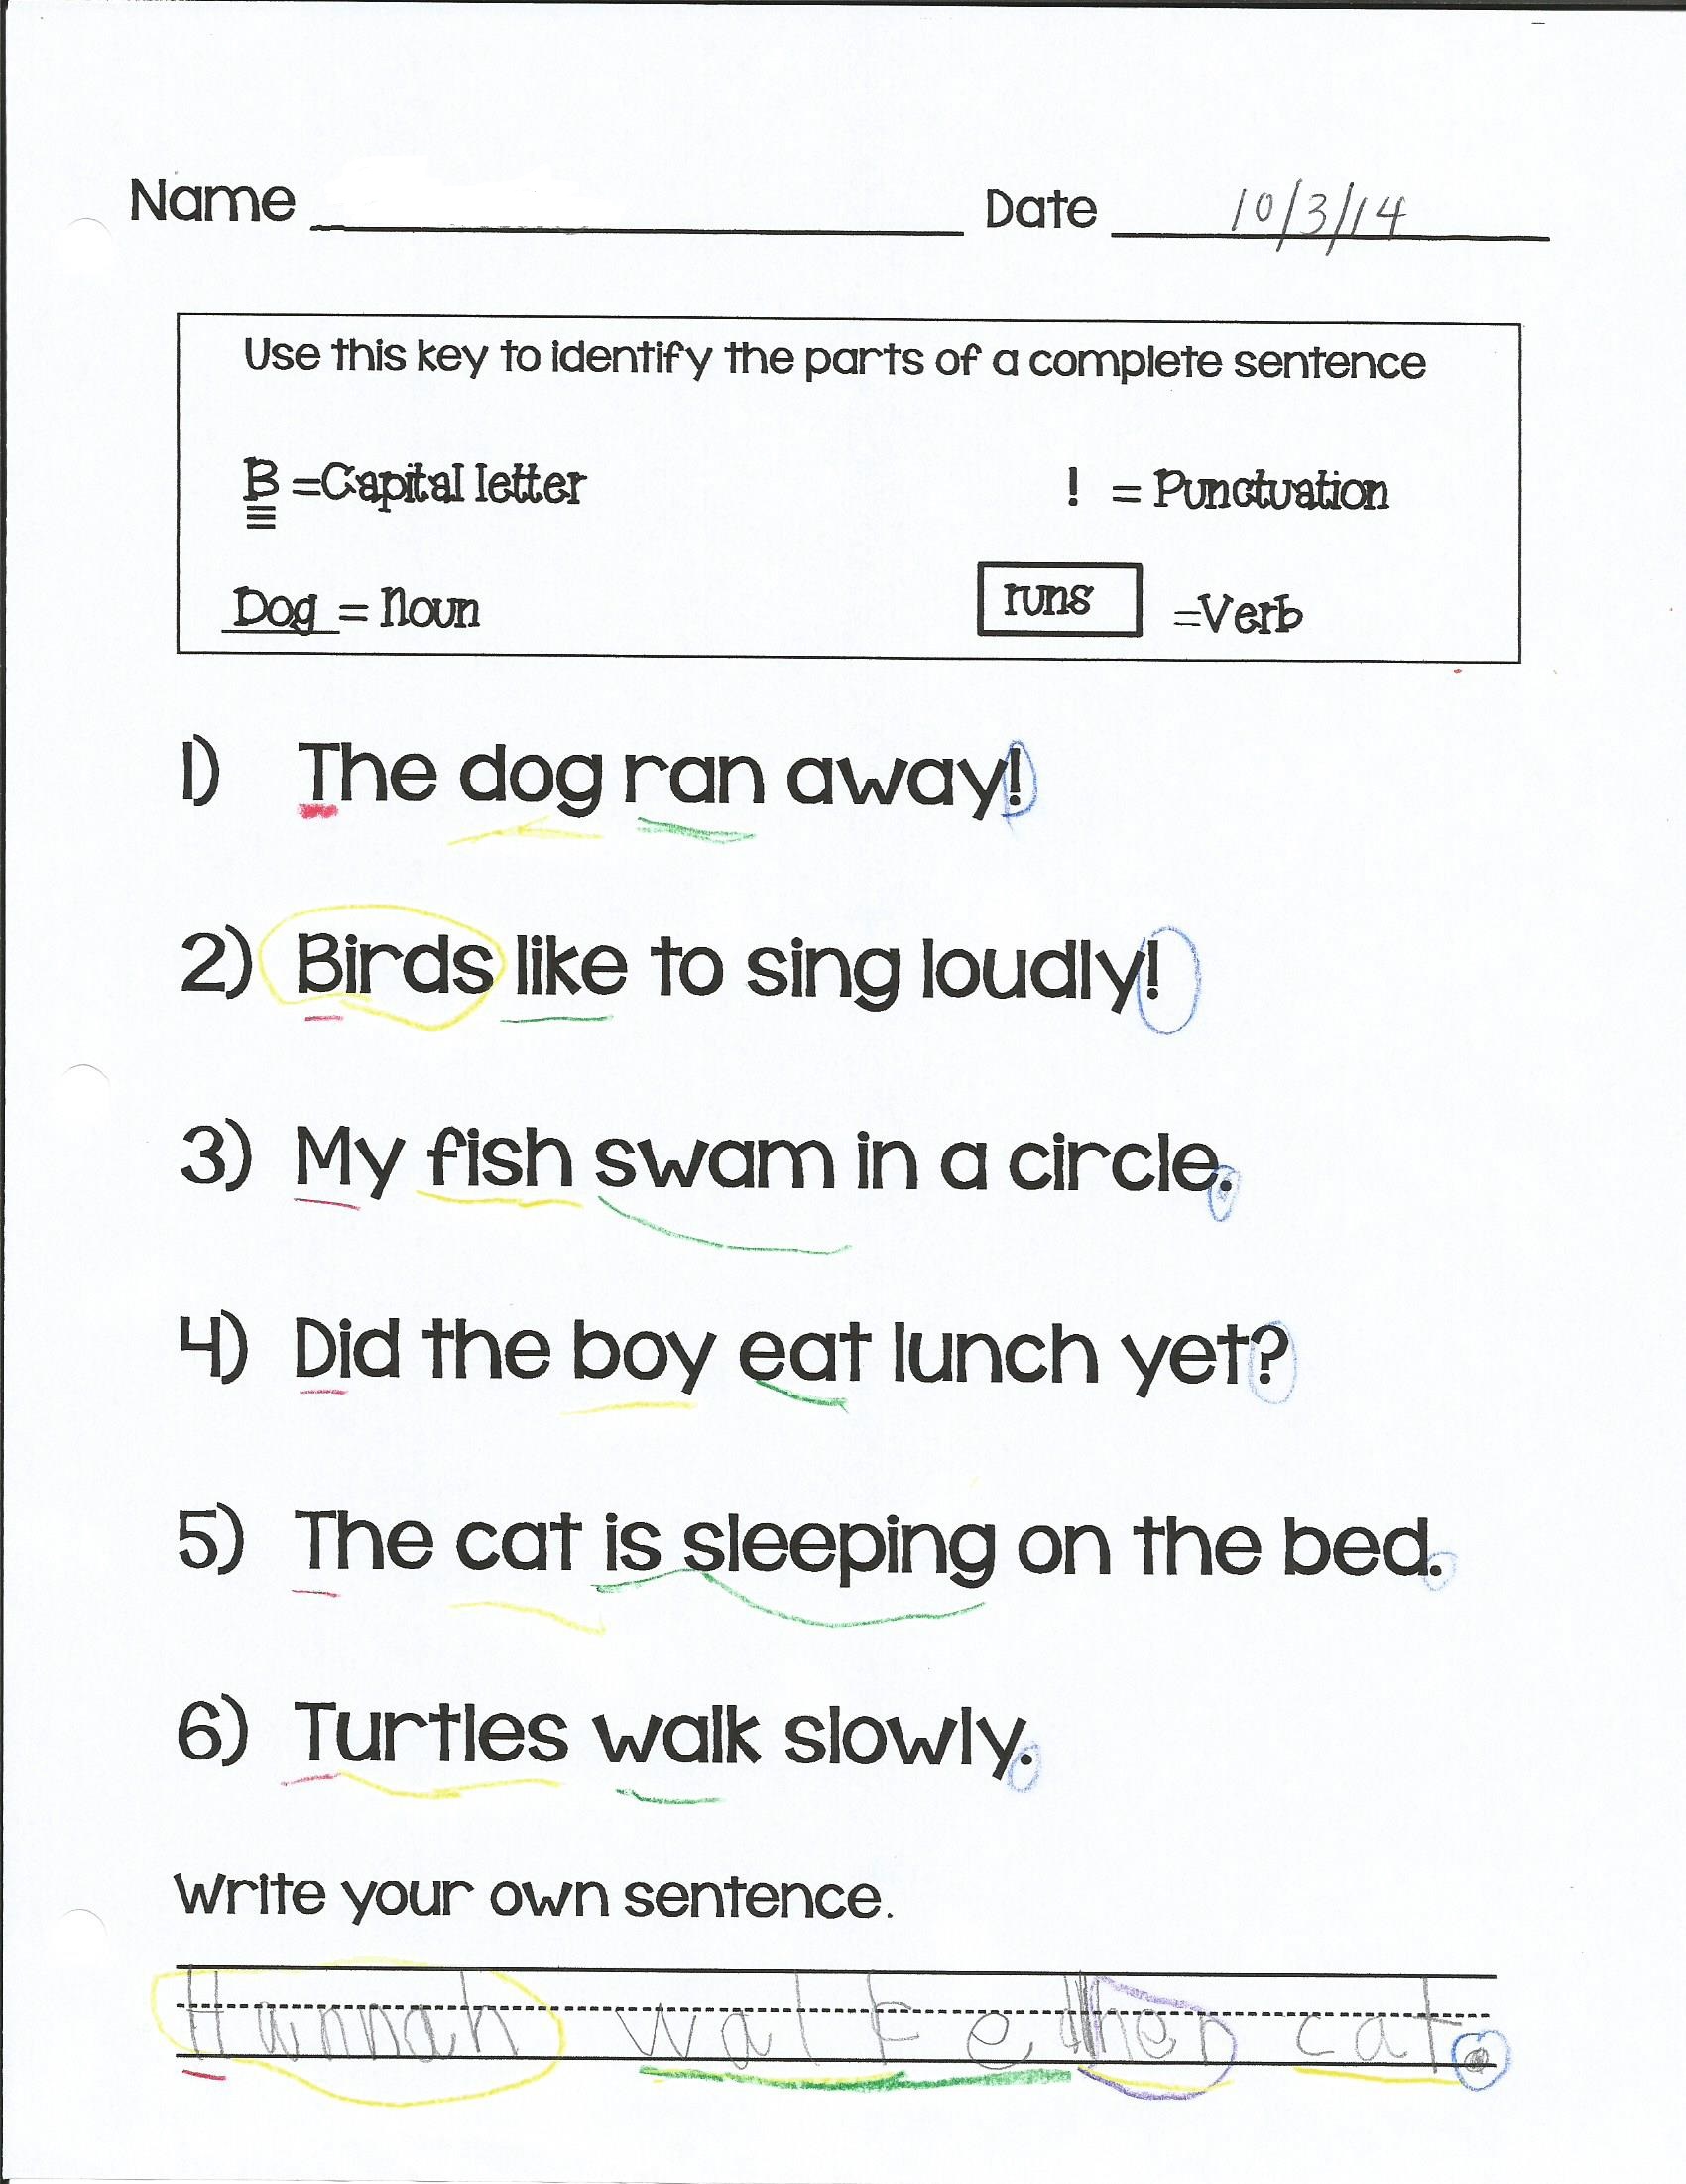 Name Date 10/3/14
Use this key to identify the parts of a complete sentence
B =Capital letter ! = Punctuation
Dog = Noun runs =Verb
1) The dog ran away!
2) Birds like to sing loudly!
3) My fish swam in a circle.
4) Did the boy eat lunch yet?
5) The cat is sleeping on the bed.
6) Turtles walk slowly.
Write your own sentence.
Hannah cat.